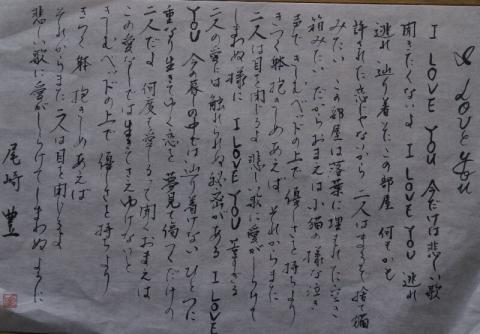 I LOVE YOU
I LOVE YOU 今だけは悲しい歌
聞きたくないよ I LOVE YOU 逃れ
逃れ 辿り着いた この部屋 何もかも
許された恋じゃないから 二人はまるで捨て猫
みたい この部屋は落葉に埋もれた空き
箱みたい だからおまえは小猫の様な泣き
声で きしむベッドの上で 優しさを持ちより
きつく躰 抱きしめあえば それからまた
二人は目を閉じるよ 悲しい歌に愛がしらけて
しまわぬ様に I LOVE YOU 若すぎる
二人の愛には触れられぬ秘密がある I LOVE
YOU 今の暮しの中では辿り着けない ひとつに
重なり生きてゆく恋を 夢見て傷つくだけの
二人だよ 何度も愛してるって聞くおまえは
この愛なしでは生きてさえゆけないと
きしむベッドの上で 優しさを持ちより
きつく躰 抱きしめあえば
それからまた二人は目を閉じるよ
悲しい歌に愛がしらけてしまわぬように
尾崎 豊